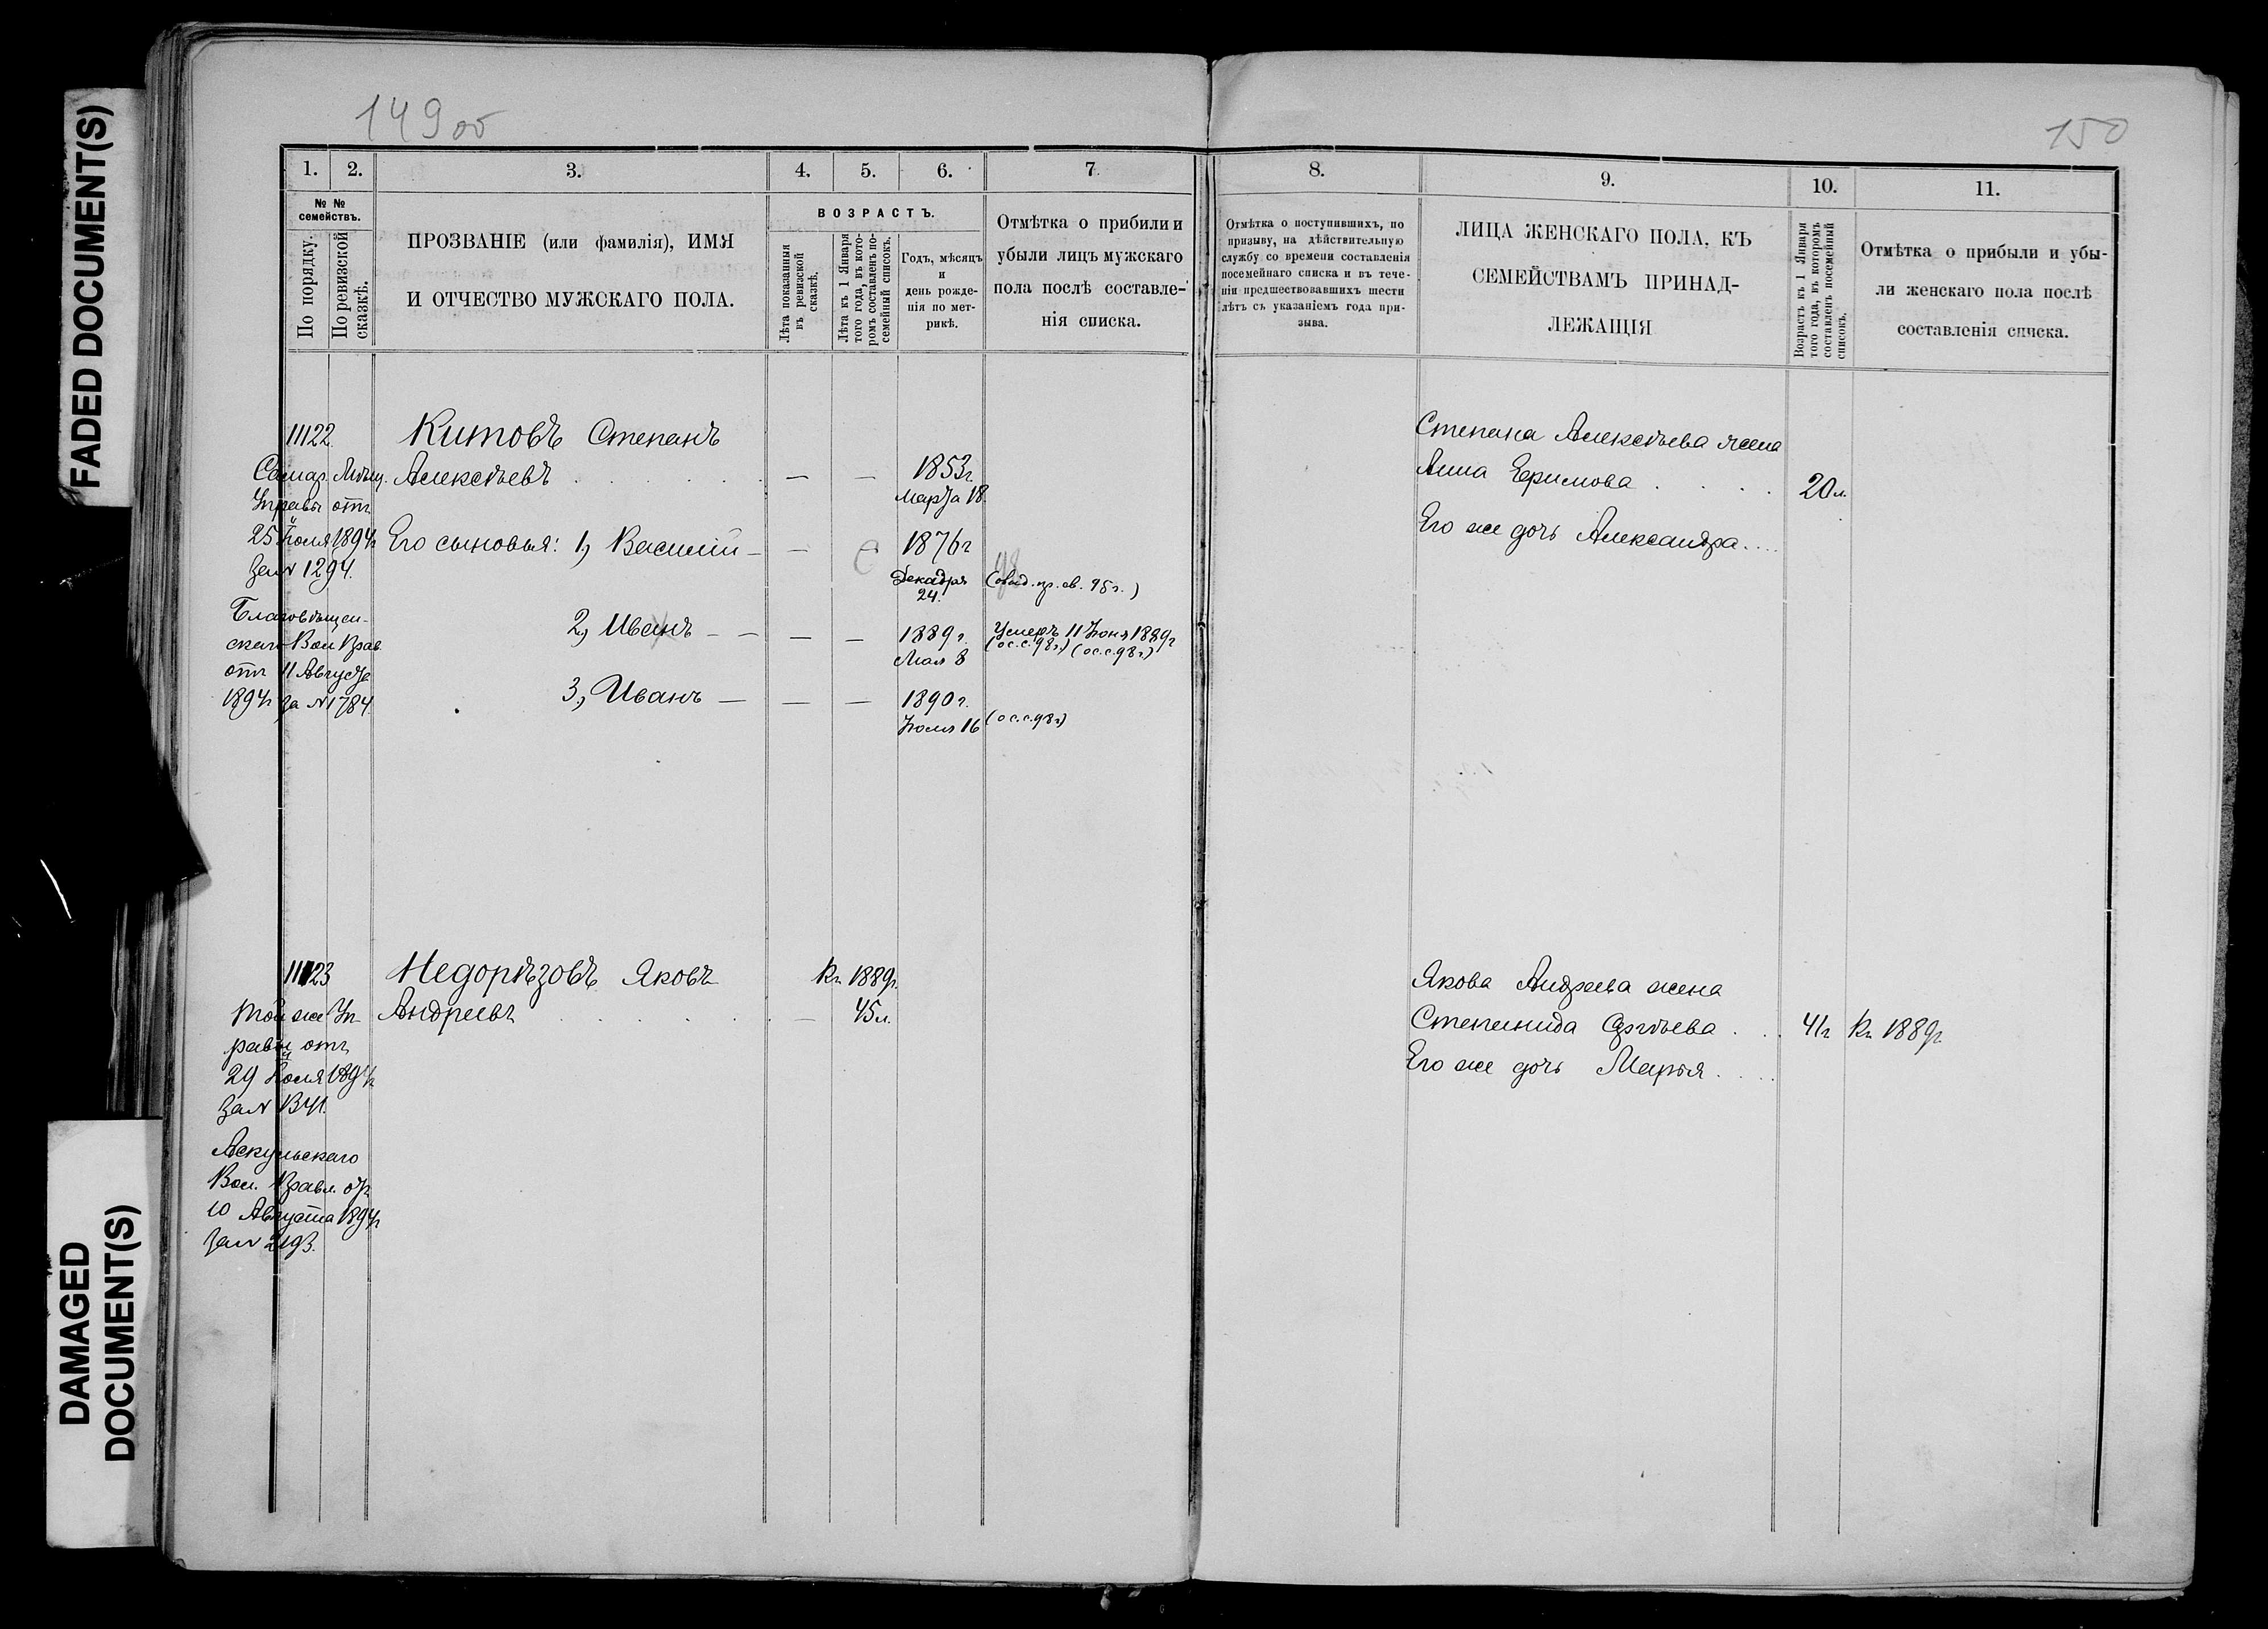 FADED DOCUMENT(S)
DAMAGED
DOCUMENT(S)
149 об
150
1.
2.
3.
4.
5.
6.
7.
8.
9.
10.
11.
№ №
семействъ.
По порядку.
По ревизской
сказкѣ.
ПРОЗВАНІЕ (или фамилія), ИМЯ
И ОТЧЕСТВО МУЖСКАГО ПОЛА.
ВОЗРАСТЪ.
Лѣта показанныя
въ ревизской
сказкѣ.
Лѣта къ 1 Января
того года, въ кото-
ромъ составленъ по-
семейный списокъ.
Годъ, мѣсяцъ
и
день рожде-
нія по мет-
рикѣ.
Отмѣтка о прибыли и
убыли лицъ мужскаго
пола послѣ составле-
нія списка.
Отмѣтка о поступившихъ, по
призыву, на дѣйствительную
службу со времени составленія
посемейнаго списка и въ тече-
ніи предшествовавшихъ шести
лѣтъ съ указаніемъ года при-
зыва.
ЛИЦА ЖЕНСКАГО ПОЛА, КЪ
СЕМЕЙСТВАМЪ ПРИНАД-
ЛЕЖАЩІЯ
Возрастъ къ 1 Января
того года, въ которомъ
составленъ посемейный
списокъ.
Отмѣтка о прибыли и убы-
ли женскаго пола послѣ
составленія списка.
11122.
Самар. Мѣщ.
Управы отъ
25 Іюля 1894г
за № 1294.
Благовѣщен-
скаго Вол. Прав
отъ 11 Августа
1894г за № 1784.
Китовъ Степанъ
Алексѣевъ — — 1853г.
Марта 18.
Его сыновья: 1) Василій — — 1876г
Декабря
24.
98
2) Иванъ — — — — 1889г. Умеръ 11 Іюня 1889г
Мая 8 (ос.с.98г.) (ос.с.98г.)
3) Иванъ — — — 1890г.
Іюля 16 (ос.с.98г)
Степана Алексѣева жена
Анна Ефимова 20л.
Его же дочь Александра
11123
Той же Уп-
равы отъ
29 Іюля 1894г
за № 1341.
Аскульскаго
Вол. Правл. отъ
10 Августа 1894г
за № 2193.
Недорѣзовъ Яковъ Къ 1889г.
Андреевъ — 45л.
Якова Андреева жена
Степанида Сергѣева 41г Къ 1889г.
Его же дочь Марья